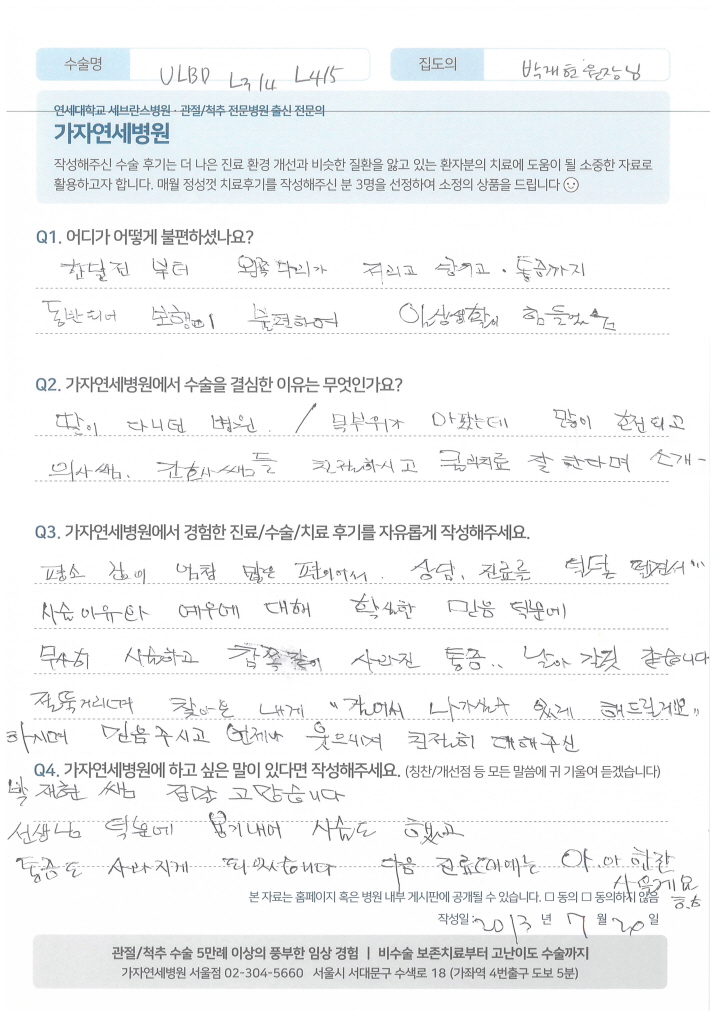 수술명 ULBD L3/4 L4/5 집도의 박재현 원장님
연세대학교 세브란스병원 · 관절/척추 전문병원 출신 전문의
가자연세병원
작성해주신 수술 후기는 더 나은 진료 환경 개선과 비슷한 질환을 앓고 있는 환자분의 치료에 도움이 될 소중한 자료로
활용하고자 합니다. 매월 정성껏 치료후기를 작성해주신 분 3명을 선정하여 소정의 상품을 드립니다
Q1. 어디가 어떻게 불편하셨나요?
한달전 부터 왼쪽 다리가 저리고 땡기고 · 통증까지
동반되어 보행이 불편하여 일상생활이 힘들었음
Q2. 가자연세병원에서 수술을 결심한 이유는 무엇인가요?
딸이 다니던 병원. / 목부위가 아팠는데 많이 호전되고
의사쌤, 간호사쌤들 친절하시고 치료 잘 한다며 소개-
Q3. 가자연세병원에서 경험한 진료/수술/치료 후기를 자유롭게 작성해주세요.
평소 겁이 엄청 많은 편이어서. 상담, 진료를
수술이유와 예후에 대해 확실한 믿음 덕분에
무사히 수술하고 감쪽같이 사라진 통증.. 날아 갈것 같습니다
절뚝거리며 찾아온 내게 "걸어서 나가실수 있게 해드릴게요"
하시며 믿음주시고 언제나 웃으시며 친절히 대해주신
Q4. 가자연세병원에 하고 싶은 말이 있다면 작성해주세요. (칭찬/개선점 등 모든 말씀에 귀 기울여 듣겠습니다)
박재현 쌤 정말 고맙습니다
선생님 덕분에 용기내어 수술도 했고
통증도 사라지게 되었습니다 다음 진료때에는 아.아 한잔
사올게요
본 자료는 홈페이지 혹은 병원 내부 게시판에 공개될 수 있습니다. □ 동의 □ 동의하지 않음
작성일 : 2013 년 7 월 20 일
관절/척추 수술 5만례 이상의 풍부한 임상 경험 | 비수술 보존치료부터 고난이도 수술까지
가자연세병원 서울점 02-304-5660 서울시 서대문구 수색로 18 (가좌역 4번출구 도보 5분)